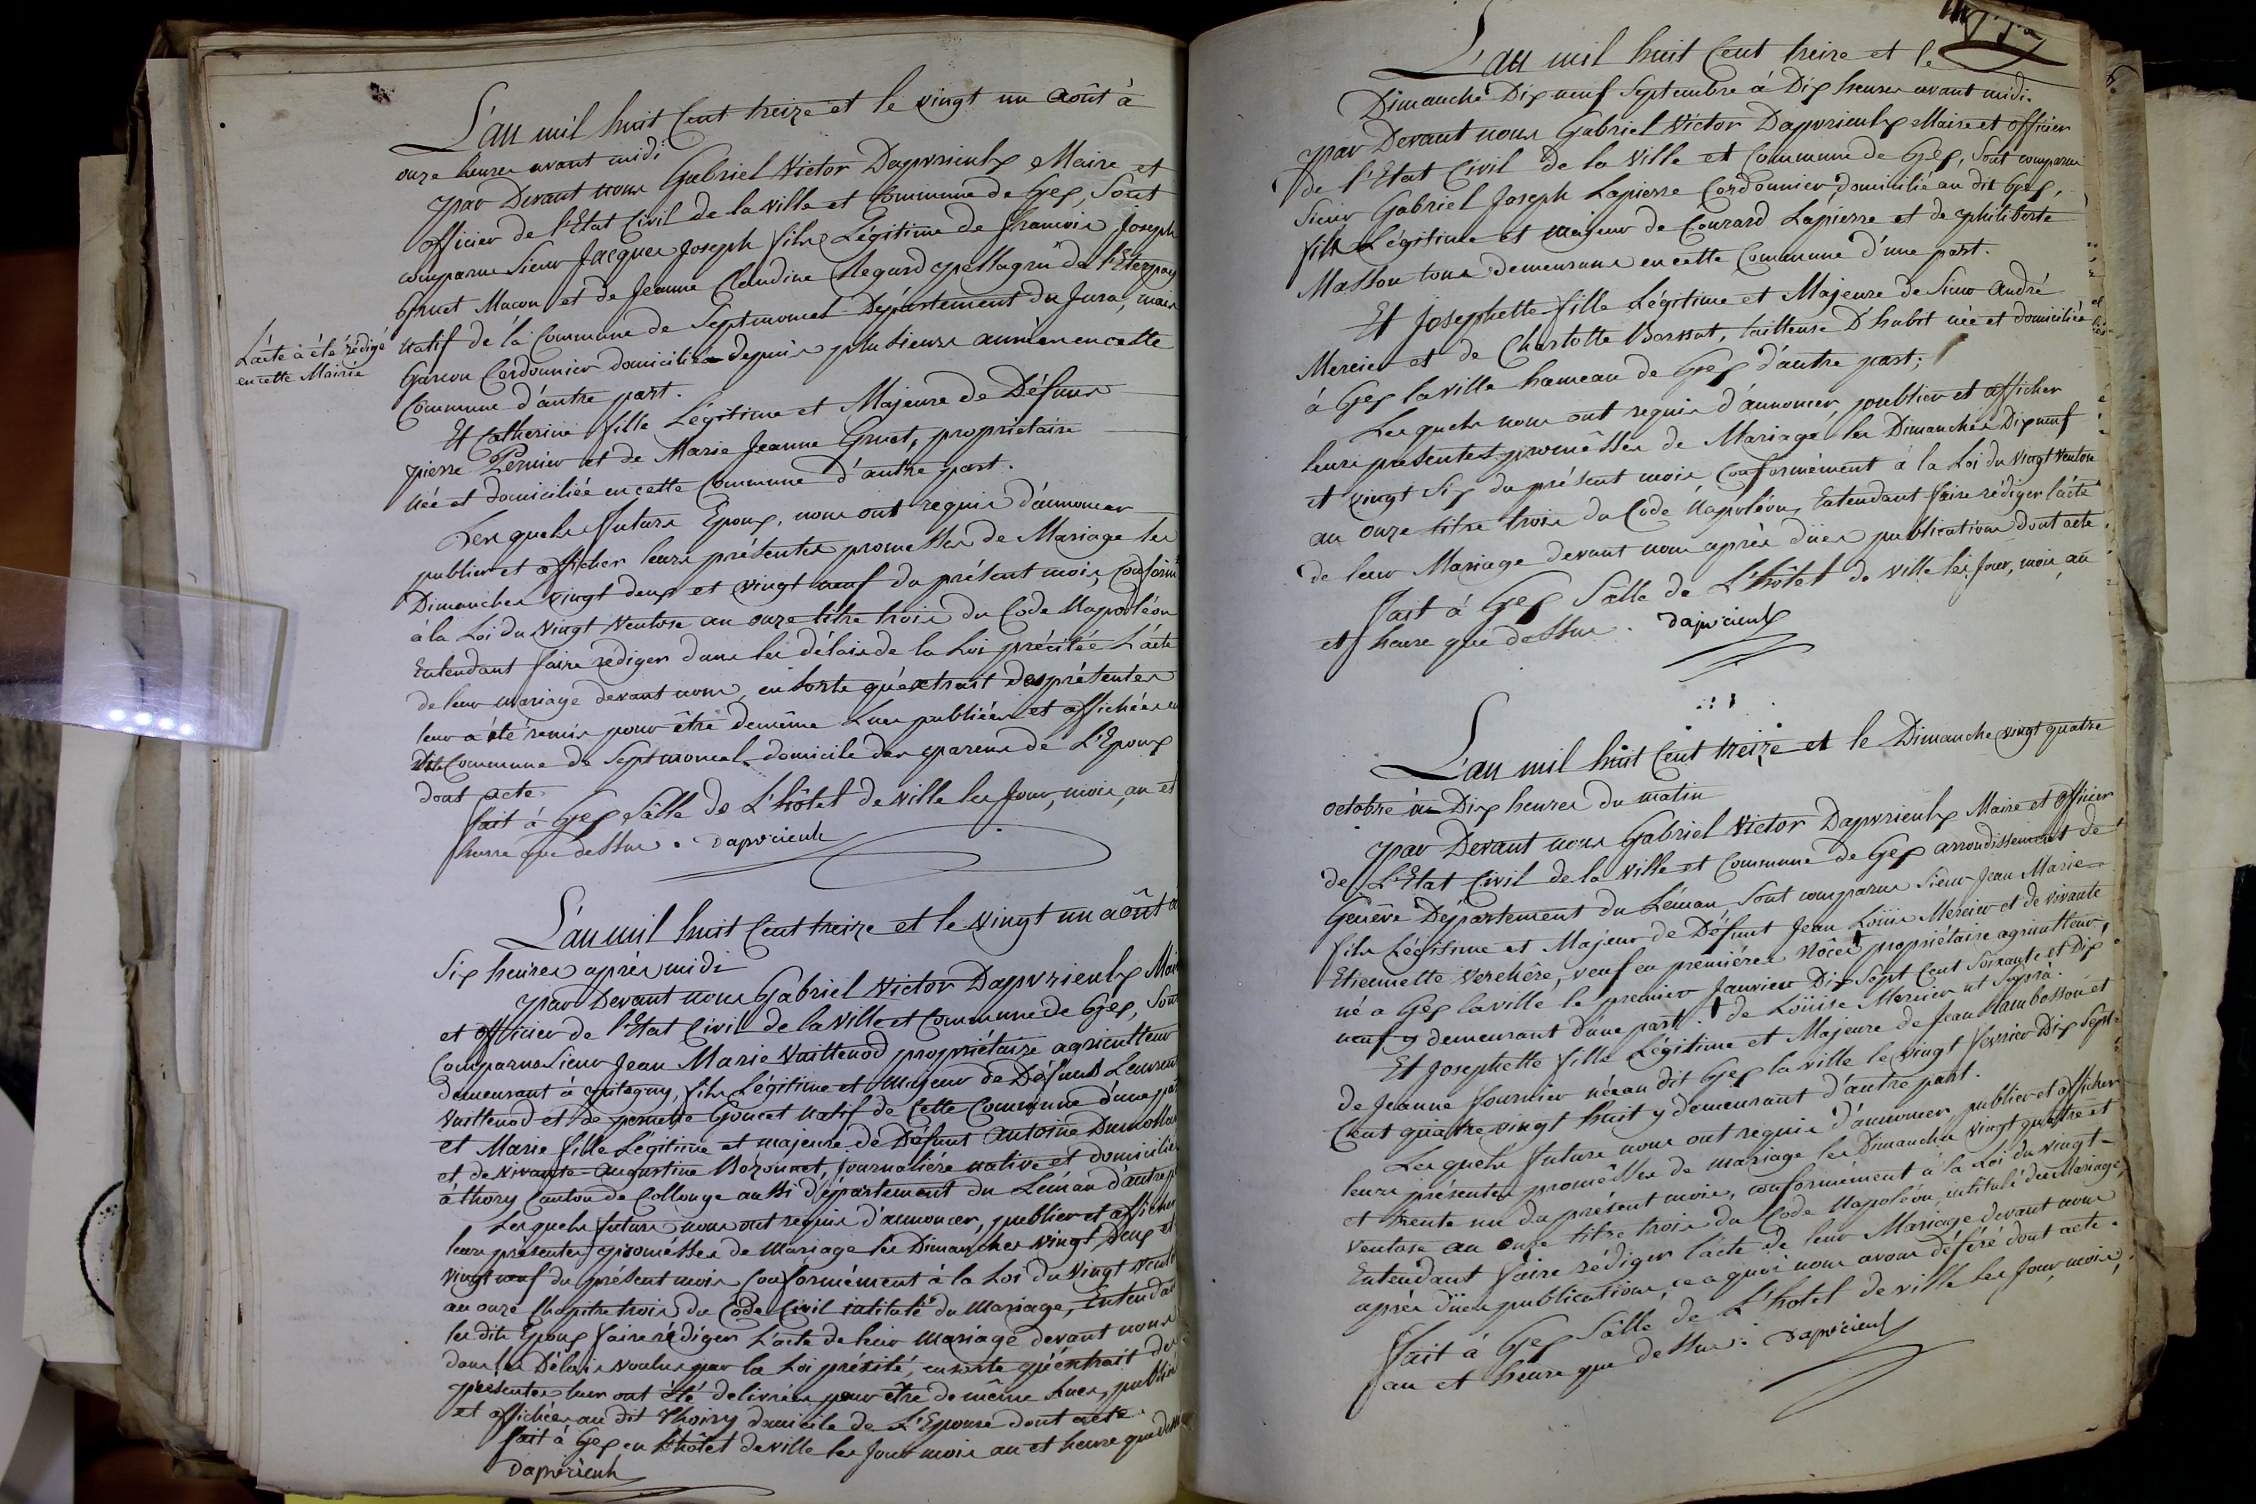 L'an mil huit Cent treize et le vingt un Août à
onze heures avant midi
par Devant nous Gabriel Victor Dapvrieulx Maire et
officier de l'Etat Civil de la ville et Commune de Gex, Sont
comparus Sieur Jacques Joseph fils Légitime de francois Joseph
Gruet Macon et de Jeanne Claudine Regard
natif de la Commune de Septmoncel Département du Jura, mais
Garcon Cordonnier domicilié depuis plusieurs années en cette
Commune d'autre part.
L'acte à été rédigé
en cette Mairie
Et Catherine fille Légitime et Majeure de Défunts
pierre Pernier et de Marie Jeanne Gruet, propriétaire
née et domiciliée en cette Commune d'autre part.
Lesquels futurs Epoux, nous ont requis d'annoncer
publier et afficher leurs présentes promesses de Mariage les
Dimanches vingt deux et vingt neuf du présent mois, Conform.t
à la Loi du Vingt Ventose an onze titre trois du Code Napoléon
Entendant faire rédiger dans les délais de la Loi précitée L'acte
de leur mariage devant nous, en sorte qu'extrait des présentes
leur a été remis pour être de même Lues publiées et affichées en
dite Commune de Septmoncel domicile des parens de L'Epoux
dont acte.
fait à Gex Sâlle de L'hôtel de ville les Jour, mois, an et
heure que dessus. Dapvrieulx
L'an mil huit Cent treize et le vingt un août à
Six heures après midi
par Devant nous Gabriel Victor Dapvrieulx Maire
et officier de l'Etat Civil de la Ville et Commune de Gex, Sont
Comparus Sieur Jean Marie Vuillenod propriétaire agriculteur
demeurant à pitegny, fils Légitime et majeur de Défunts Laurent
Vuillenod et de pernette Goncet natif de Cette Commune d'une part
et Marie fille Légitime et majeure de Défunt Antoine
et de vivante Augustine Bozonnet, Journalière native et domiciliée
à thoiry Canton de Collonge aussi Département du Léman d'autre p.
Lesquels futurs nous ont requis d'annoncer, publier et afficher
leurs présentes promesses de Mariage les Dimanches vingt Deux et
vingt neuf du présent mois Conformément à la Loi du Vingt Vent
an onze Chapitre trois du Code Civil intitulé du Mariage, Entendant
les dits Epoux faire rédiger L'acte de leur Mariage devant nous
dans les Délais voulus par la Loi précité, en sorte qu'extrait des
présentes leur ont été delivrés pour être de même Lues, publiées
et affichées au dit thoiry domicile de L'Epouse dont acte.
fait à Gex en L'hôtel de ville les Jour mois an et heure que dessus
Dapvrieulx
L'an mil huit Cent treize et le
Dimanche Dix neuf Septembre à Dix heures avant midi.
par Devant nous Gabriel Victor Dapvrieulx Maire et officier
de l'Etat Civil de la Ville et Commune de Gex, Sont comparus
Sieur Gabriel Joseph Lapierre Cordonnier domicilié au dit Gex,
fils Légitime et majeur de Conrard Lapierre et de philiberte
Masson tous demeurans en cette Commune d'une part.
Et Josephette fille Légitime et Majeure de Sieur André
Mercier et de Charlotte Bossut, tailleuse D'habit née et domiciliée
à Gex la ville hameau de Gex d'autre part;
Lesquels nous ont requis d'annoncer publier et afficher
leurs présentes promêsses de Mariage les Dimanches Dix neuf
et vingt Six du présent mois, Conformément à la Loi du Vingt Ventose
an onze titre trois du Code Napoléon, Entendant faire rédiger l'acte
de leur Mariage devant nous après dües publications dont acte.
fait à Gex Sâlle de L'hôtel de ville les Jour, mois, an
et heure que dessus. Dapvrieulx
L'an mil huit Cent treize et le Dimanche vingt quatre
octobre à Dix heures du matin
par Devant nous Gabriel Victor Dapvrieulx Maire et officier
de L'Etat Civil de la ville et Commune de Gex arrondissement de
Genève Département du Léman Sont comparus Sieur Jean Marie
fils Légitime et Majeur de Défunt Jean Loüis Mercier et de vivante
Etiennette Verchère, veuf en premières Nôces propriétaire agriculteur,
né a Gex la ville le premier Janvier Dix Sept Cent Soixante et Dix
neuf y demeurant d'une part. de Loüise Mercier ut Suprà.
Et Josephette fille Légitime et Majeure de Jean Hambosson et
de Jeanne fournier née au dit Gex la ville le vingt fevrier Dix Sept
Cent quatre vingt huit y demeurant d'autre part.
Lesquels futurs nous ont requis d'annoncer, publier et afficher
leurs présentes promêsses de mariage les Dimanches vingt quatre et
et trente un du présent mois, conformément à la Loi du vingt
Ventose an onze titre trois du Code Napoléon, intitulé du Mariage,
Entendant faire rédiger l'acte de leur Mariage devant nous
après dües publications, ce a quoi nous avons déféré dont acte.
fait à Gex Sâlle de L'hotel de ville les Jour, mois,
an et heure que dessus. Dapvrieulx